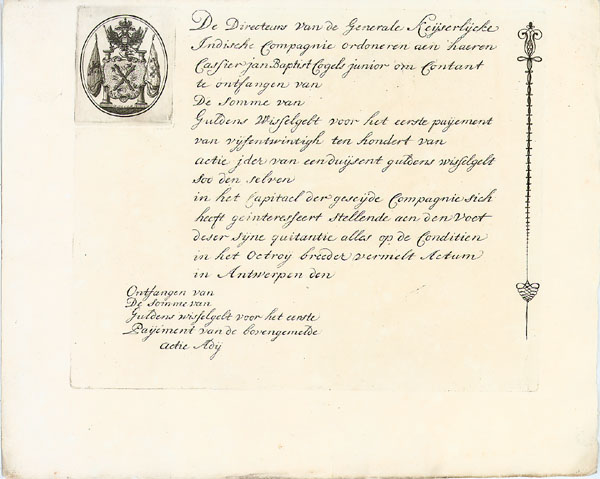 De Directeurs van de Generale Keijserlijcke
Indische Compagnie ordoneren aen haeren
Cassier jan Baptist Cogels junior om Contant
te ontfangen van
De somme van
Guldens Wisselgelt voor het eerste paijement
van vijfentwintigh ten hondert van
actie jder van eenduijsent guldens wisselgelt
soo den selven
in het Capitael der geseijde Compagnie sich
heeft geinteresseert stellende aen den voet
deser sijne quitantie alles op de Conditien
in het Octroy breeder vermelt Actum
in Antwerpen den
Ontfangen van
De somme van
Guldens wisselgelt voor het eerste
Paijement van de bovengemelde
actie Adij